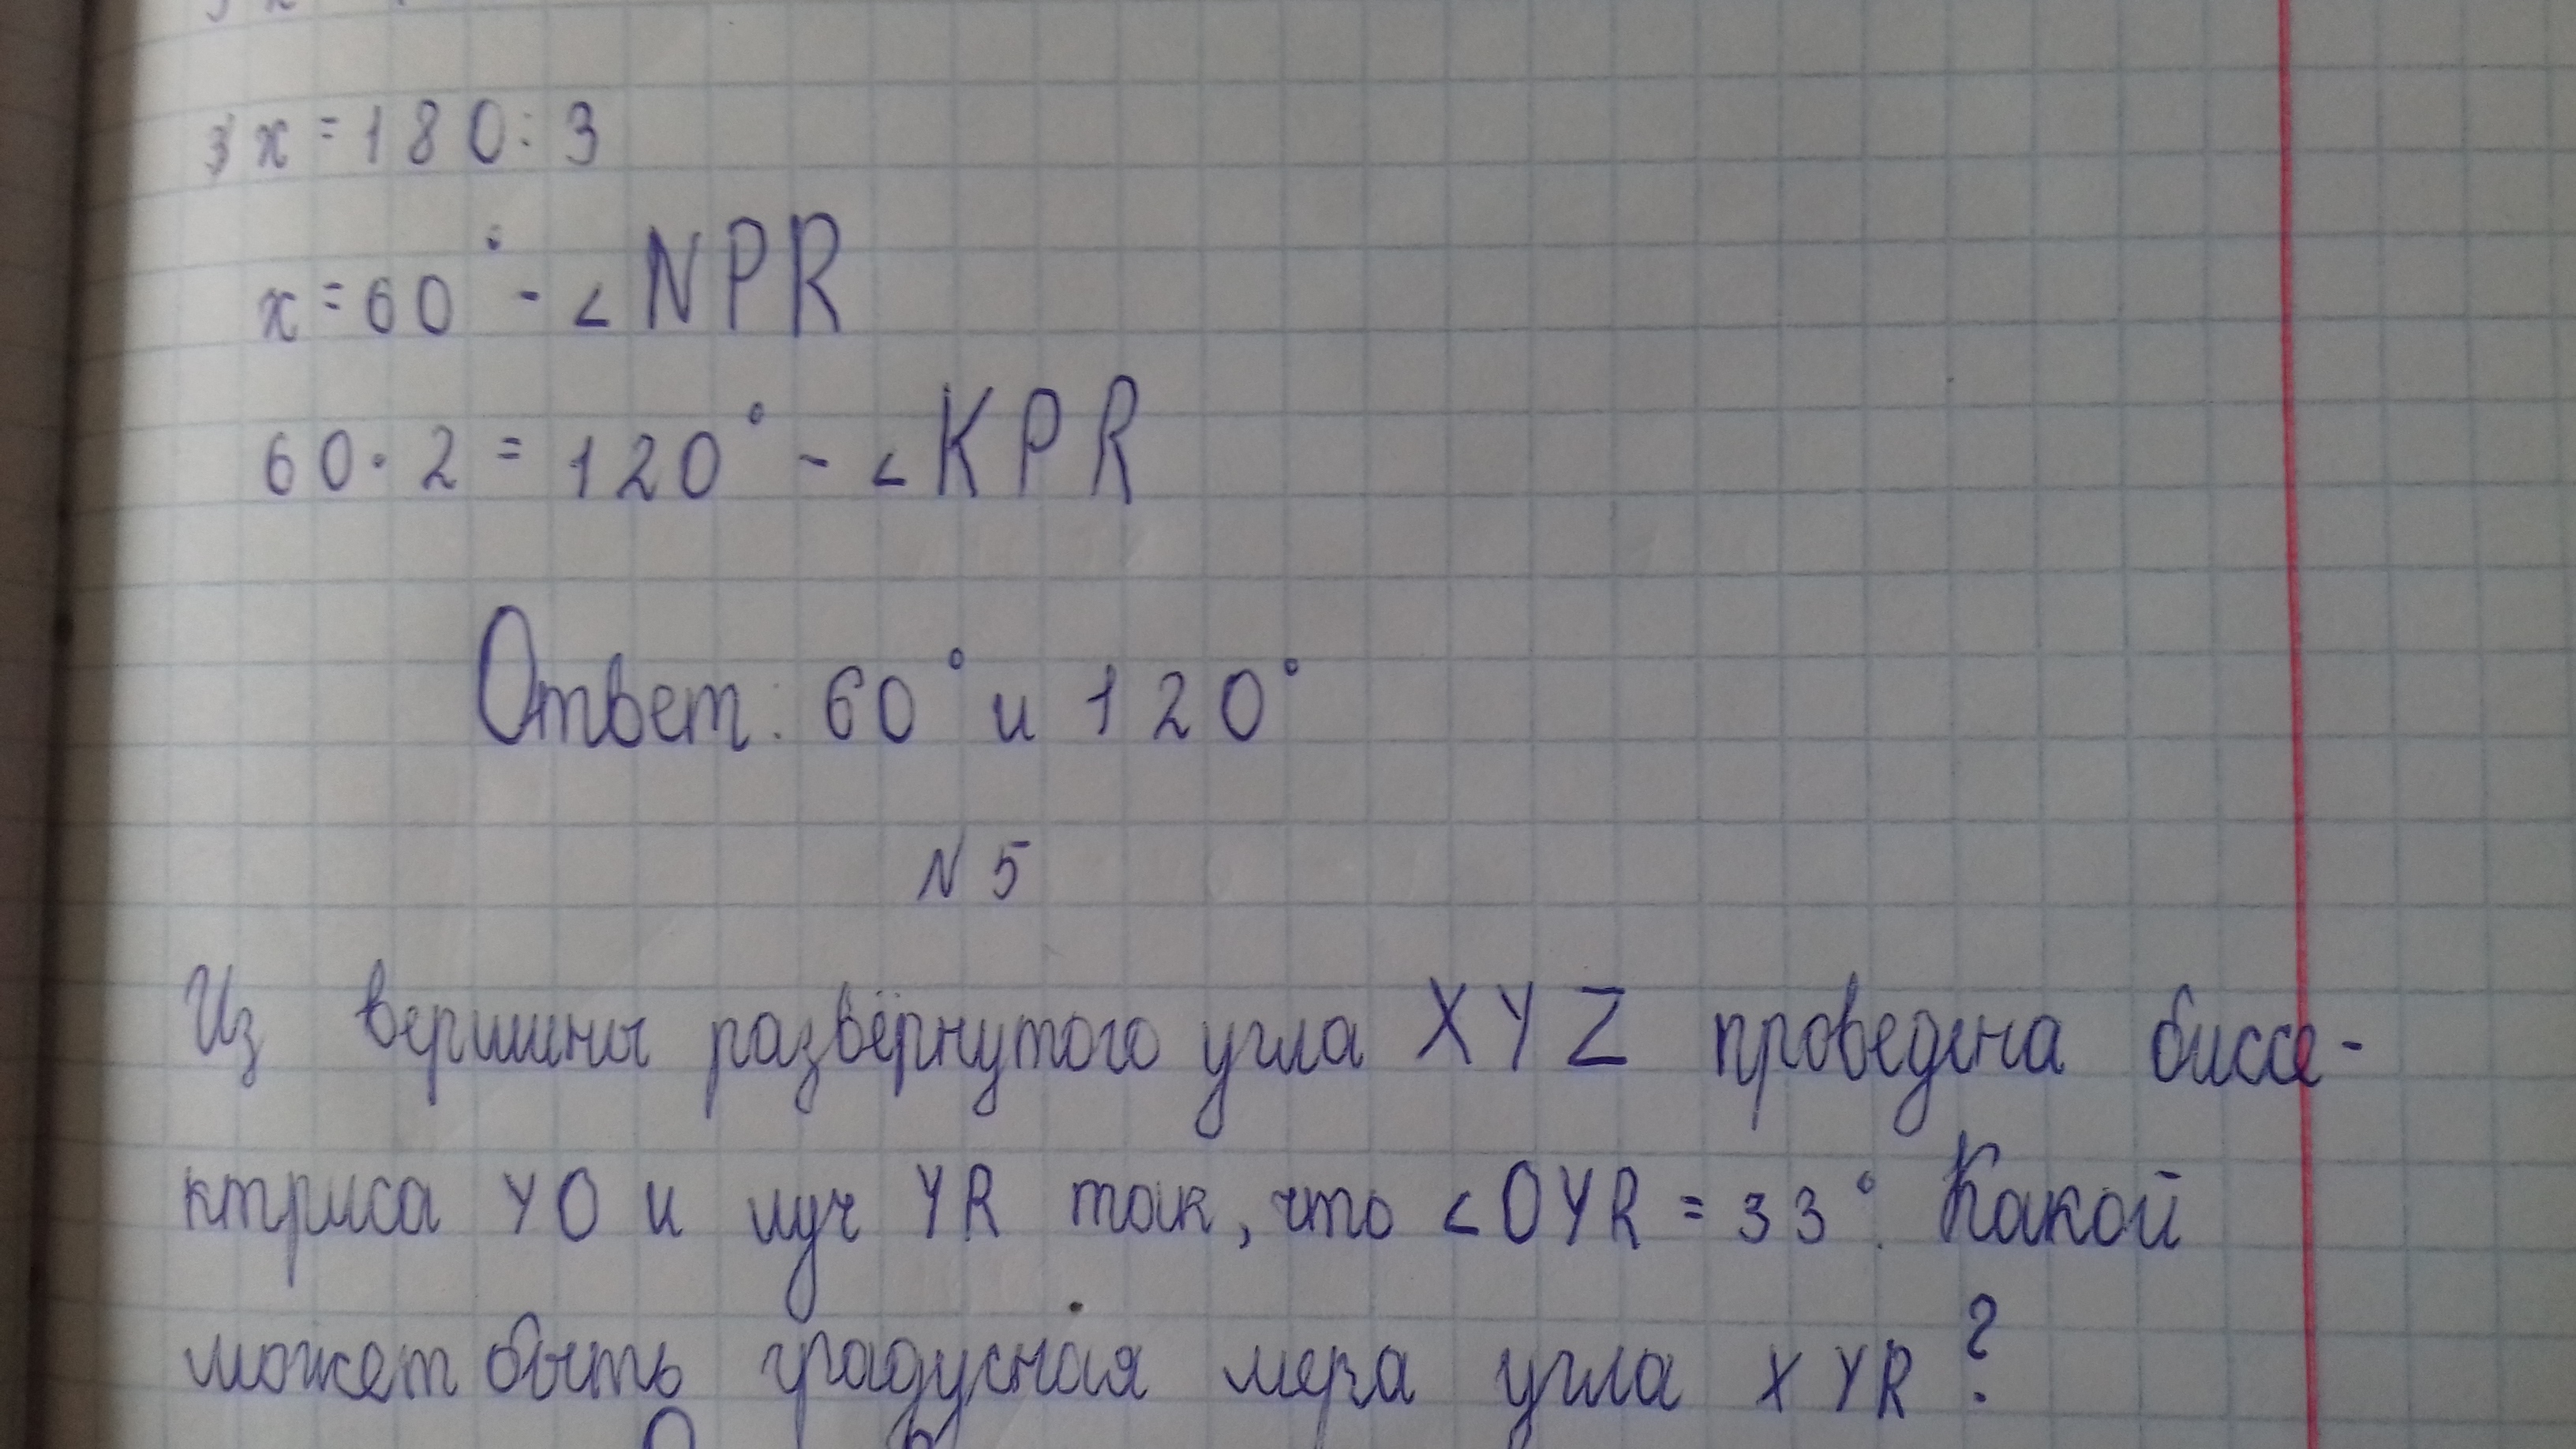 3x=180:3
x=60° - ∠NPR
60·2=120° - ∠KPR
Ответ: 60° и 120°
N5
Из вершины развёрнутого угла XYZ проведена биссе-
ктриса YO и луч YR так, что ∠OYR = 33°. Какой
может быть градусная мера угла XYR?